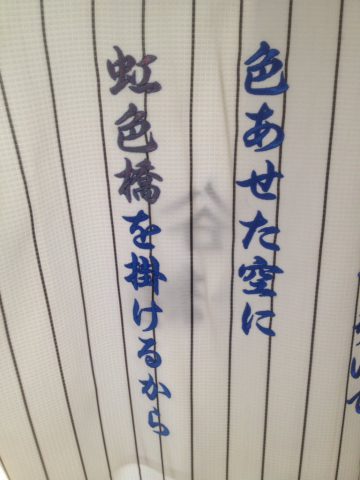 色あせた空に
虹色橋を掛けるから